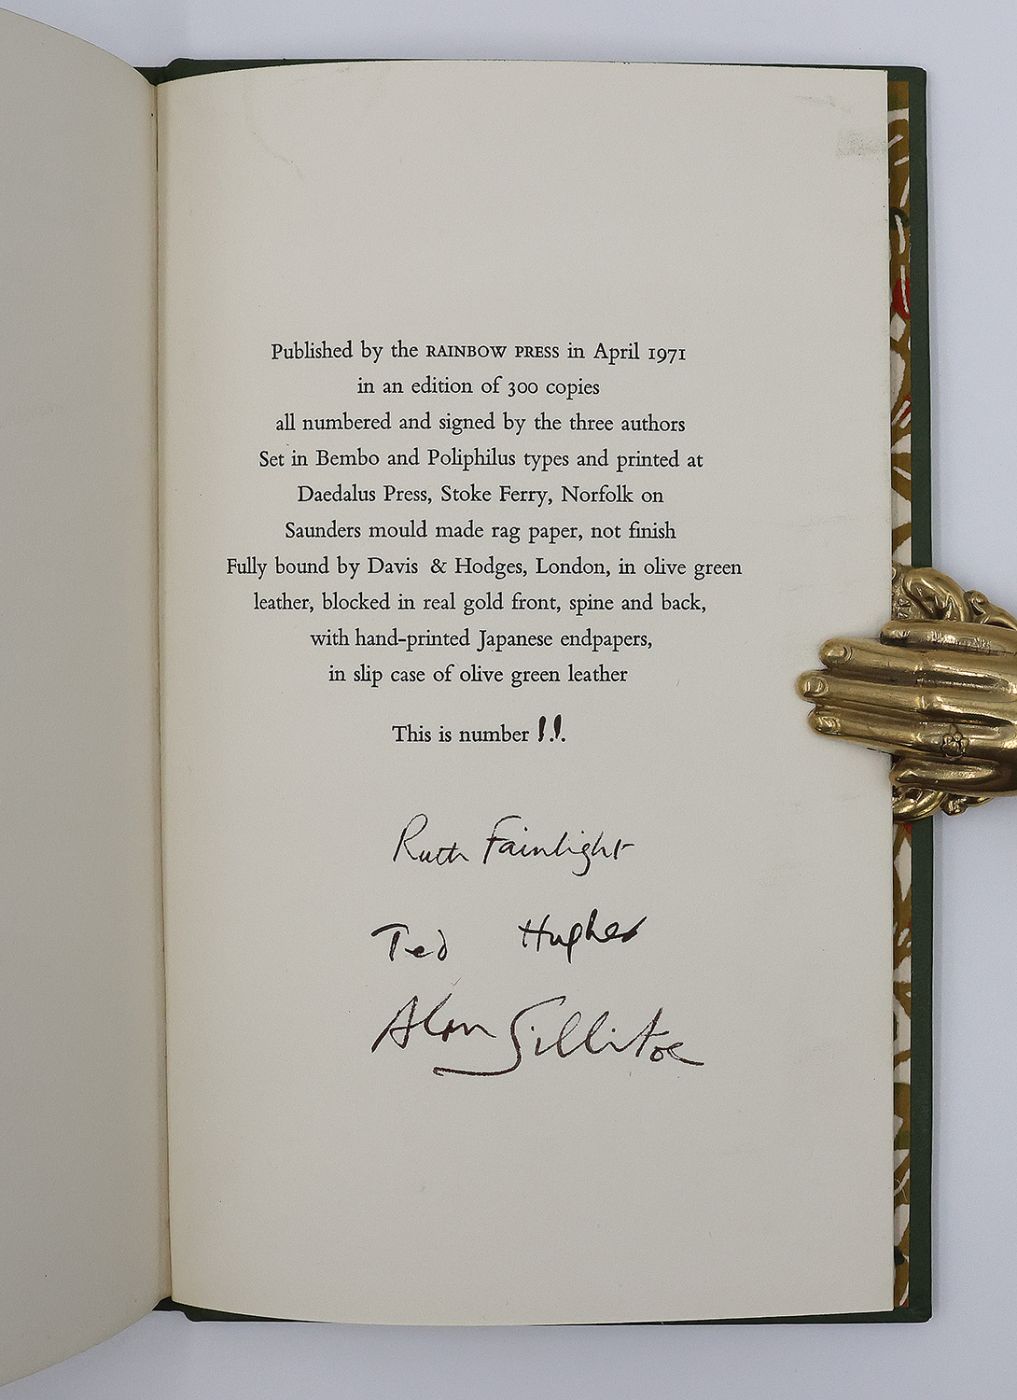 Published by the RAINBOW PRESS in April 1971
in an edition of 300 copies
all numbered and signed by the three authors
Set in Bembo and Poliphilus types and printed at
Daedalus Press, Stoke Ferry, Norfolk on
Saunders mould made rag paper, not finish
Fully bound by Davis & Hodges, London, in olive green
leather, blocked in real gold front, spine and back,
with hand-printed Japanese endpapers,
in slip case of olive green leather
This is number 11.
Ruth Fainlight
Ted Hughes
Alan Sillitoe